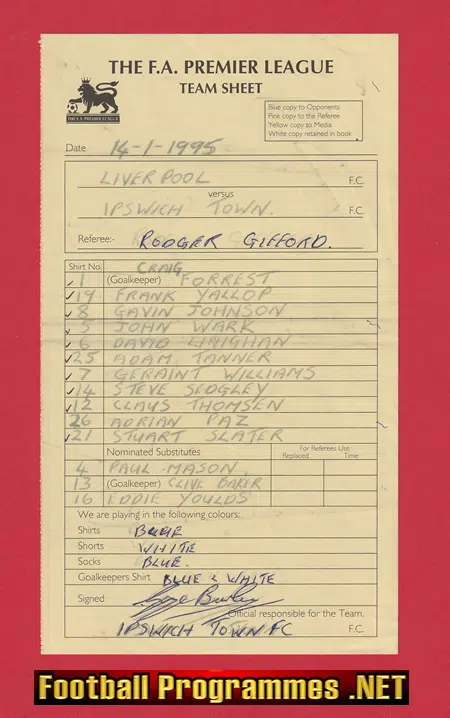 THE F.A. PREMIER LEAGUE
TEAM SHEET
THE F.A. PREMIER LEAGUE
Blue copy to Opponents
Pink copy to the Referee
Yellow copy to Media
White copy retained in book
Date 14-1-1995
LIVERPOOL F.C.
versus
IPSWICH TOWN. F.C.
Referee:- RODGER GIFFORD.
Shirt No.
1 (Goalkeeper) CRAIG FORREST
19 FRANK YALLOP
8 GAVIN JOHNSON
5 JOHN WARK
6 DAVID LINIGHAN
25 ADAM TANNER
7 GERAINT WILLIAMS
14 STEVE SEDGLEY
12 CLAUS THOMSEN
26 ADRIAN PAZ
21 STUART SLATER
Nominated Substitutes For Referees Use
Replaced Time
4 PAUL MASON
13 (Goalkeeper) CLIVE BAKER
16 EDDIE YOULDS
We are playing in the following colours:
Shirts BLUE
Shorts WHITE
Socks BLUE.
Goalkeepers Shirt BLUE & WHITE
Signed
Official responsible for the Team.
IPSWICH TOWN FC F.C.
Football Programmes .NET